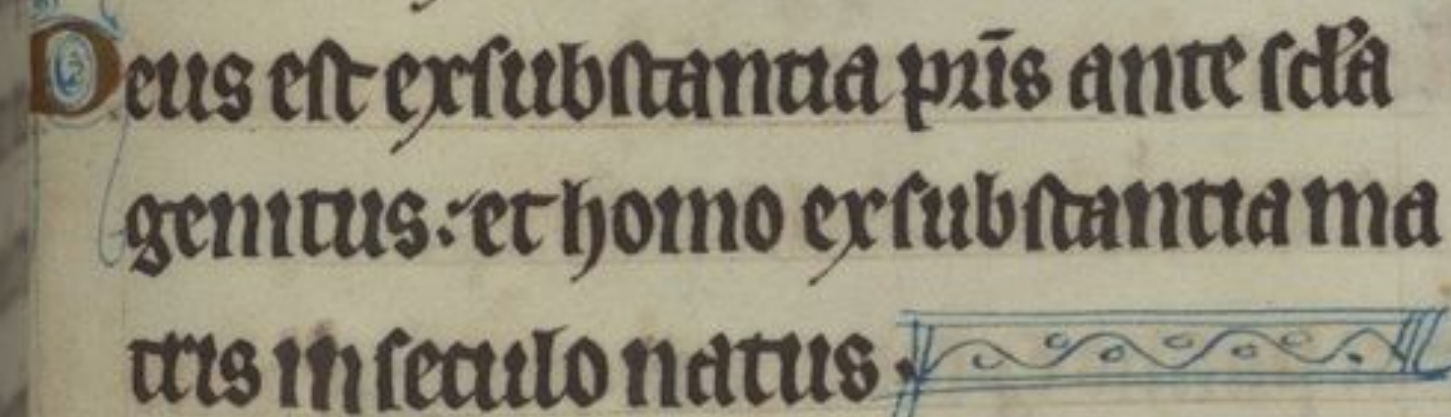 Deus est exsubstantia pr̄is ante scl̓a
genitus: et homo exsubstantia ma
tris in seculo natus.